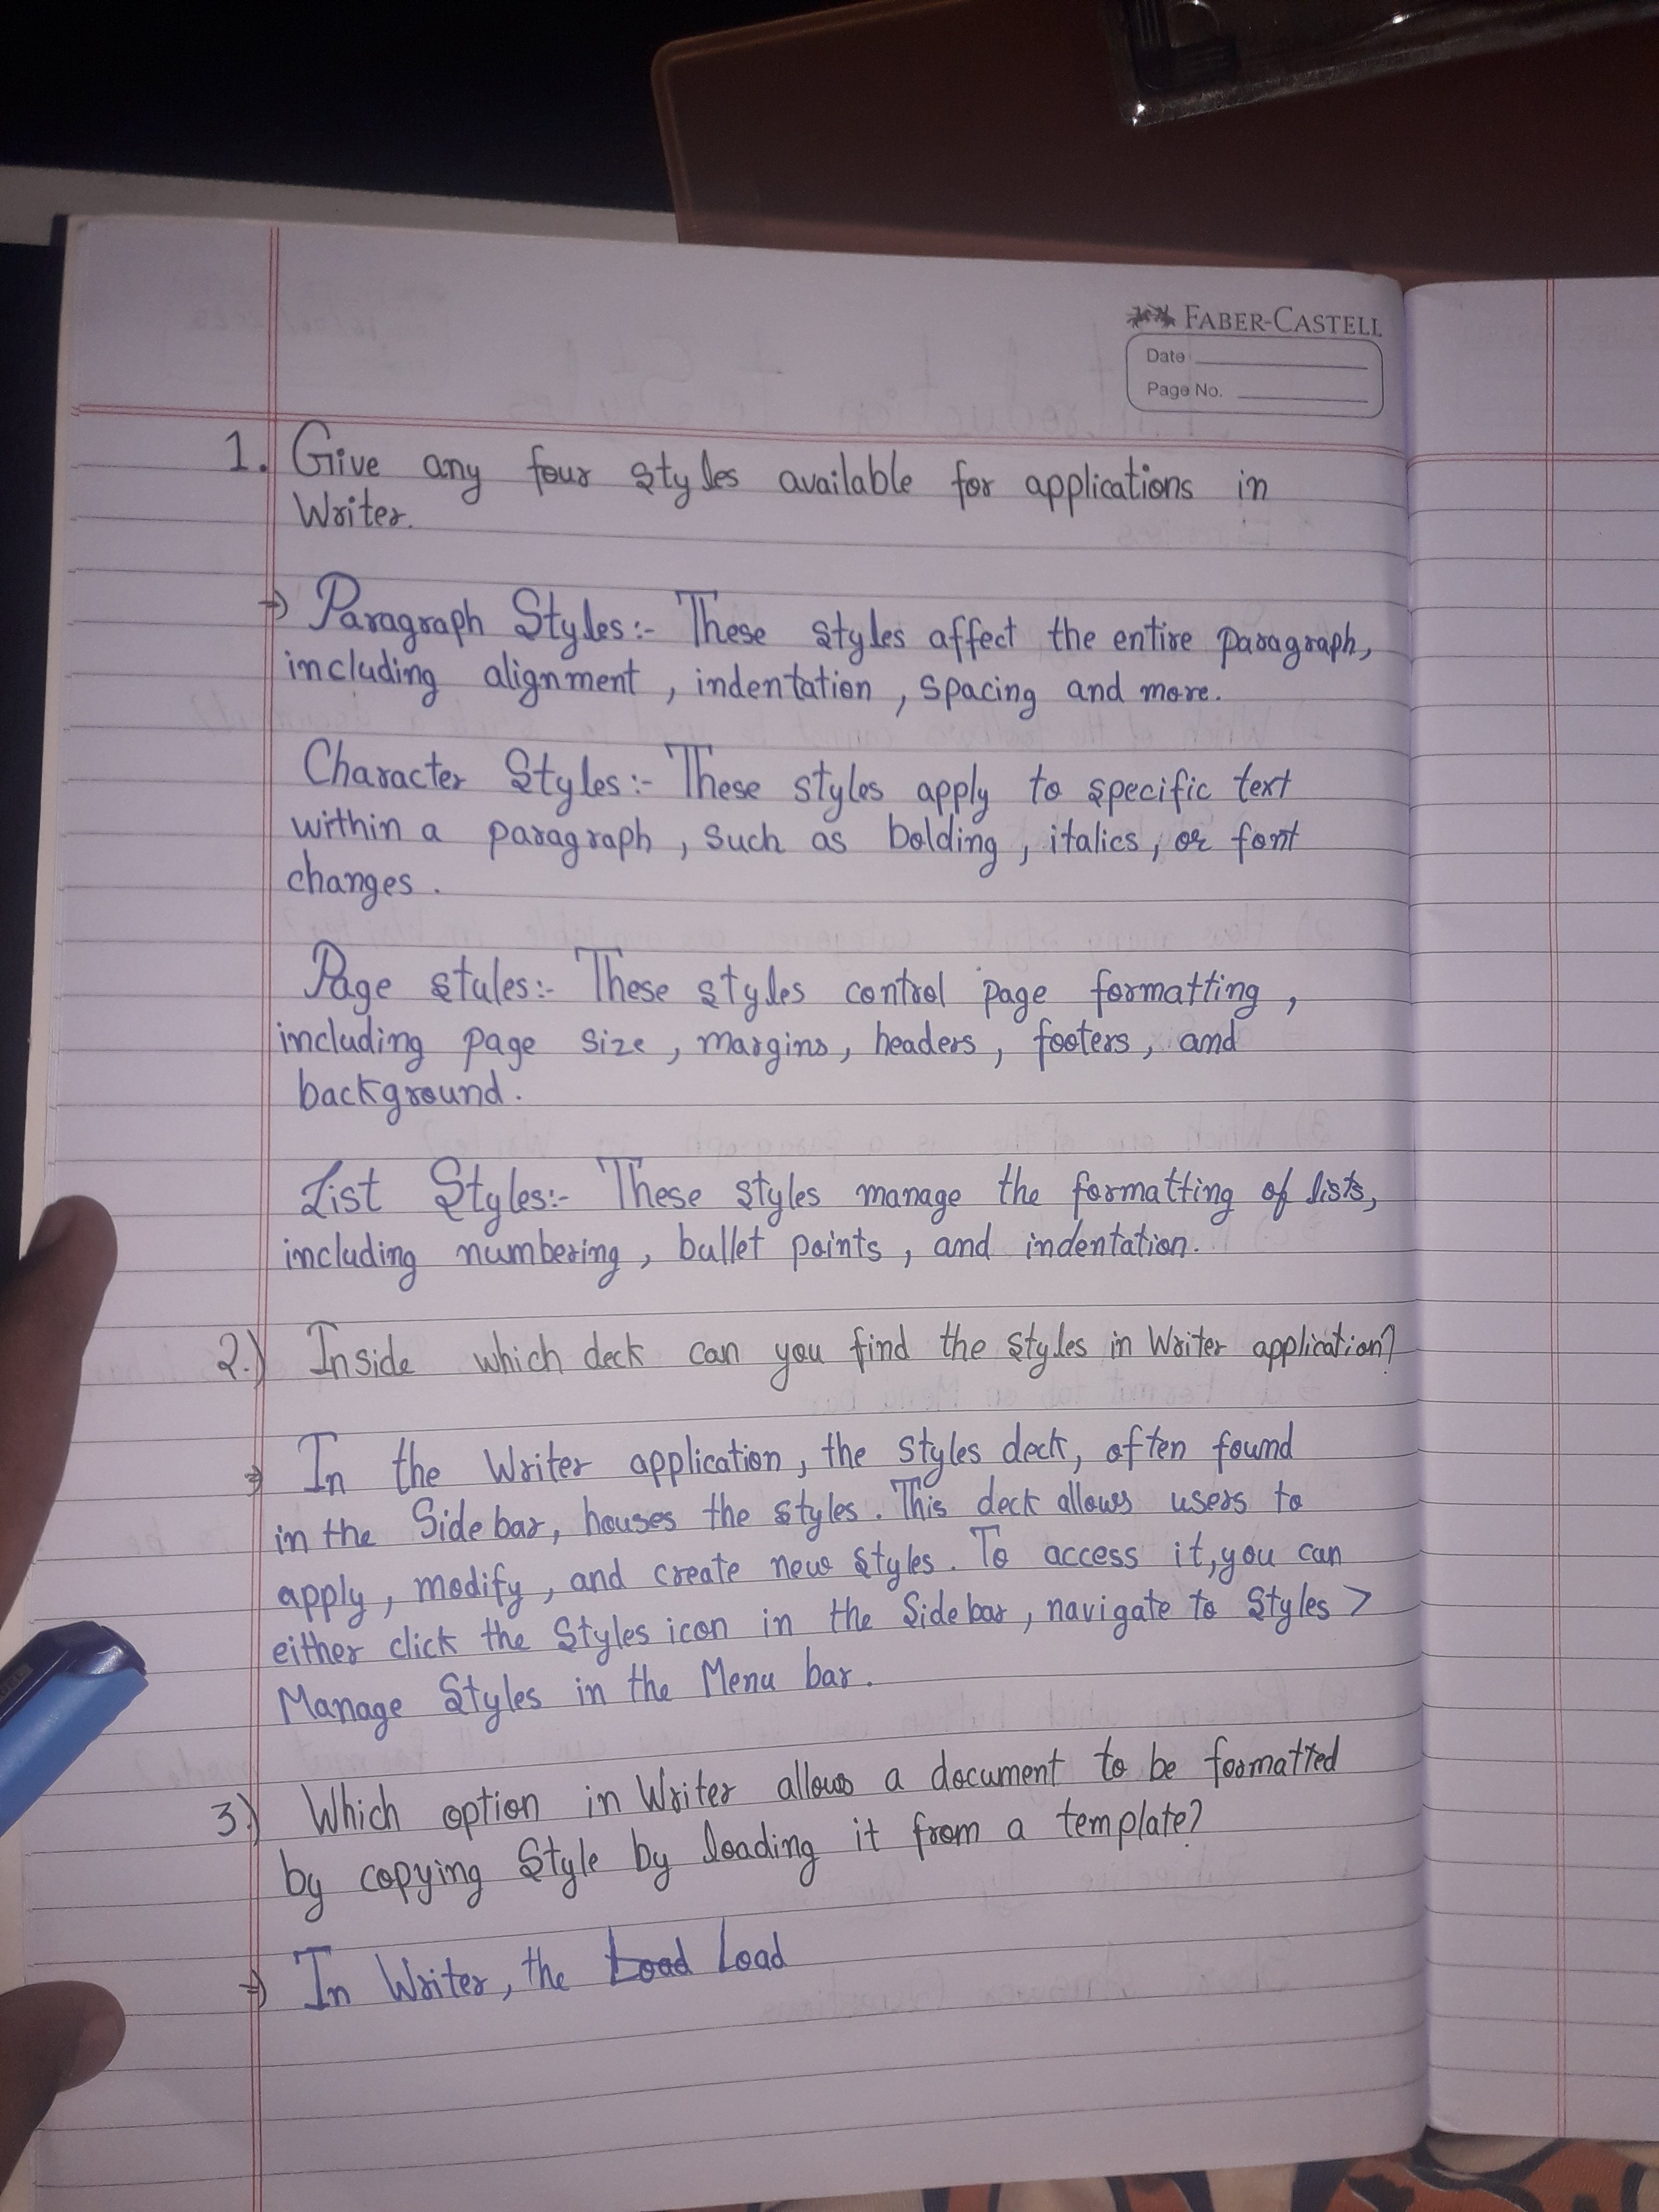 FABER-CASTELL
Date
Page No.
1. Give any four styles available for applications in
Writer.
⇒ Paragraph Styles:- These styles affect the entire paragraph,
including alignment, indentation, spacing and more.
Character Styles:- These styles apply to specific text
within a paragraph, such as bolding, italics, or font
changes.
Page stules:- These styles control page formatting,
including page size, margins, headers, footers, and
background.
List Styles:- These styles manage the formatting of lists,
including numbering, bullet points, and indentation.
2.) Inside which deck can you find the styles in Writer application?
⇒ In the Writer application, the styles deck, often found
in the Sidebar, houses the styles. This deck allows users to
apply, modify, and create new styles. To access it, you can
either click the Styles icon in the Sidebar, navigate to Styles >
Manage Styles in the Menu bar.
3.) Which option in Writer allows a document to be formatted
by copying Style by loading it from a template?
⇒ In Writer, the Load Load